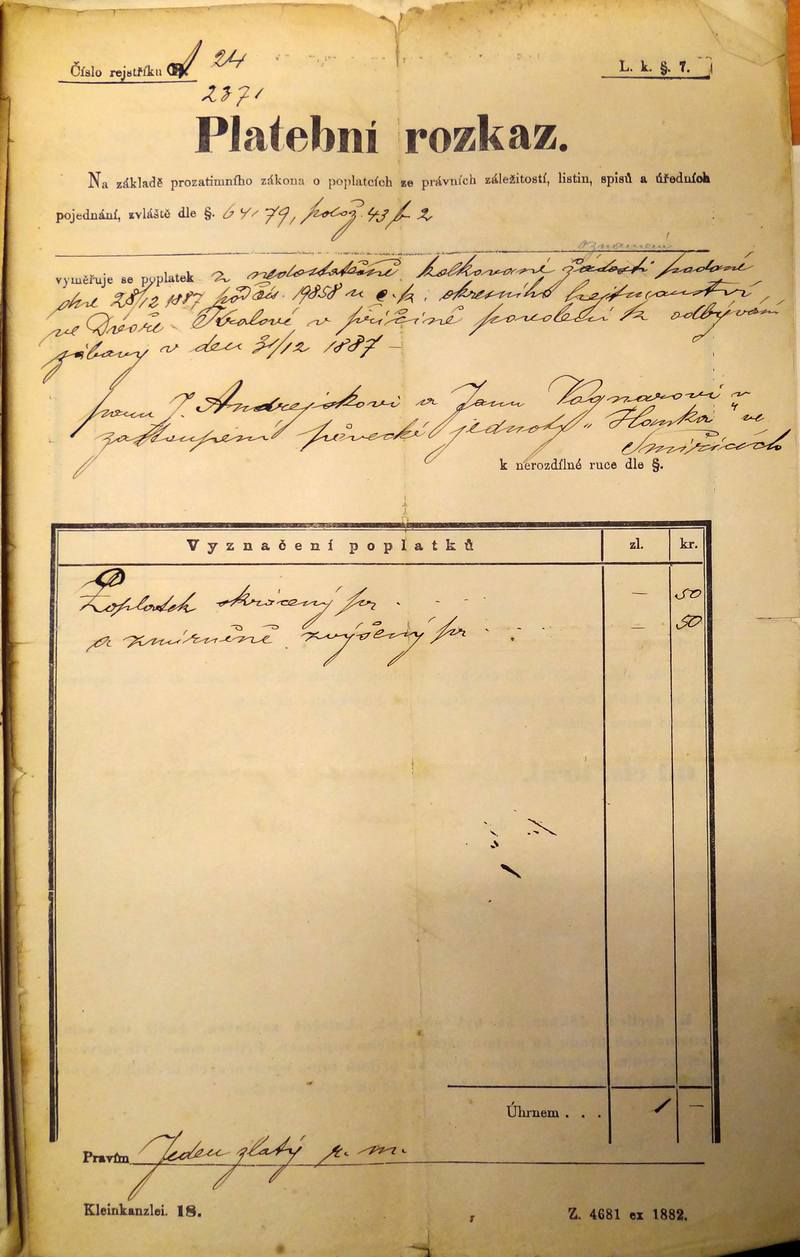 Číslo rejstříku 24
2371
L. k. §. 7.
Platební rozkaz.
Na základě prozatimního zákona o poplatcích ze právních záležitostí, listin, spisů a úředních
pojednání, zvláště dle §. 64. 79, polož. 43 b 2
oznámení
vyměřuje se poplatek z nedostatečně kolkované žádosti podané
dne 28/12 1887 pod čís. 19858 u c. k. okresního hejtmanství
ve Dvoře Králové v příčině povolení k odbývání
zábavy v den 31/12 1887 –
panu J. Andrejskovi a Janu Vágnerovi v
zastoupení pěvecké jednoty „Hanka" ve
Smiřicích
k nerozdílné ruce dle §.
Vyznačení poplatků zl. kr.
Poplatek zkrácený pr . . — 50
a zmírněně zvýšený pr . . . — 50
Úhrnem . . . 1 —
Pravím Jeden zlatý r. m.
Kleinkanzlei. 18.
Z. 4681 ex 1882.